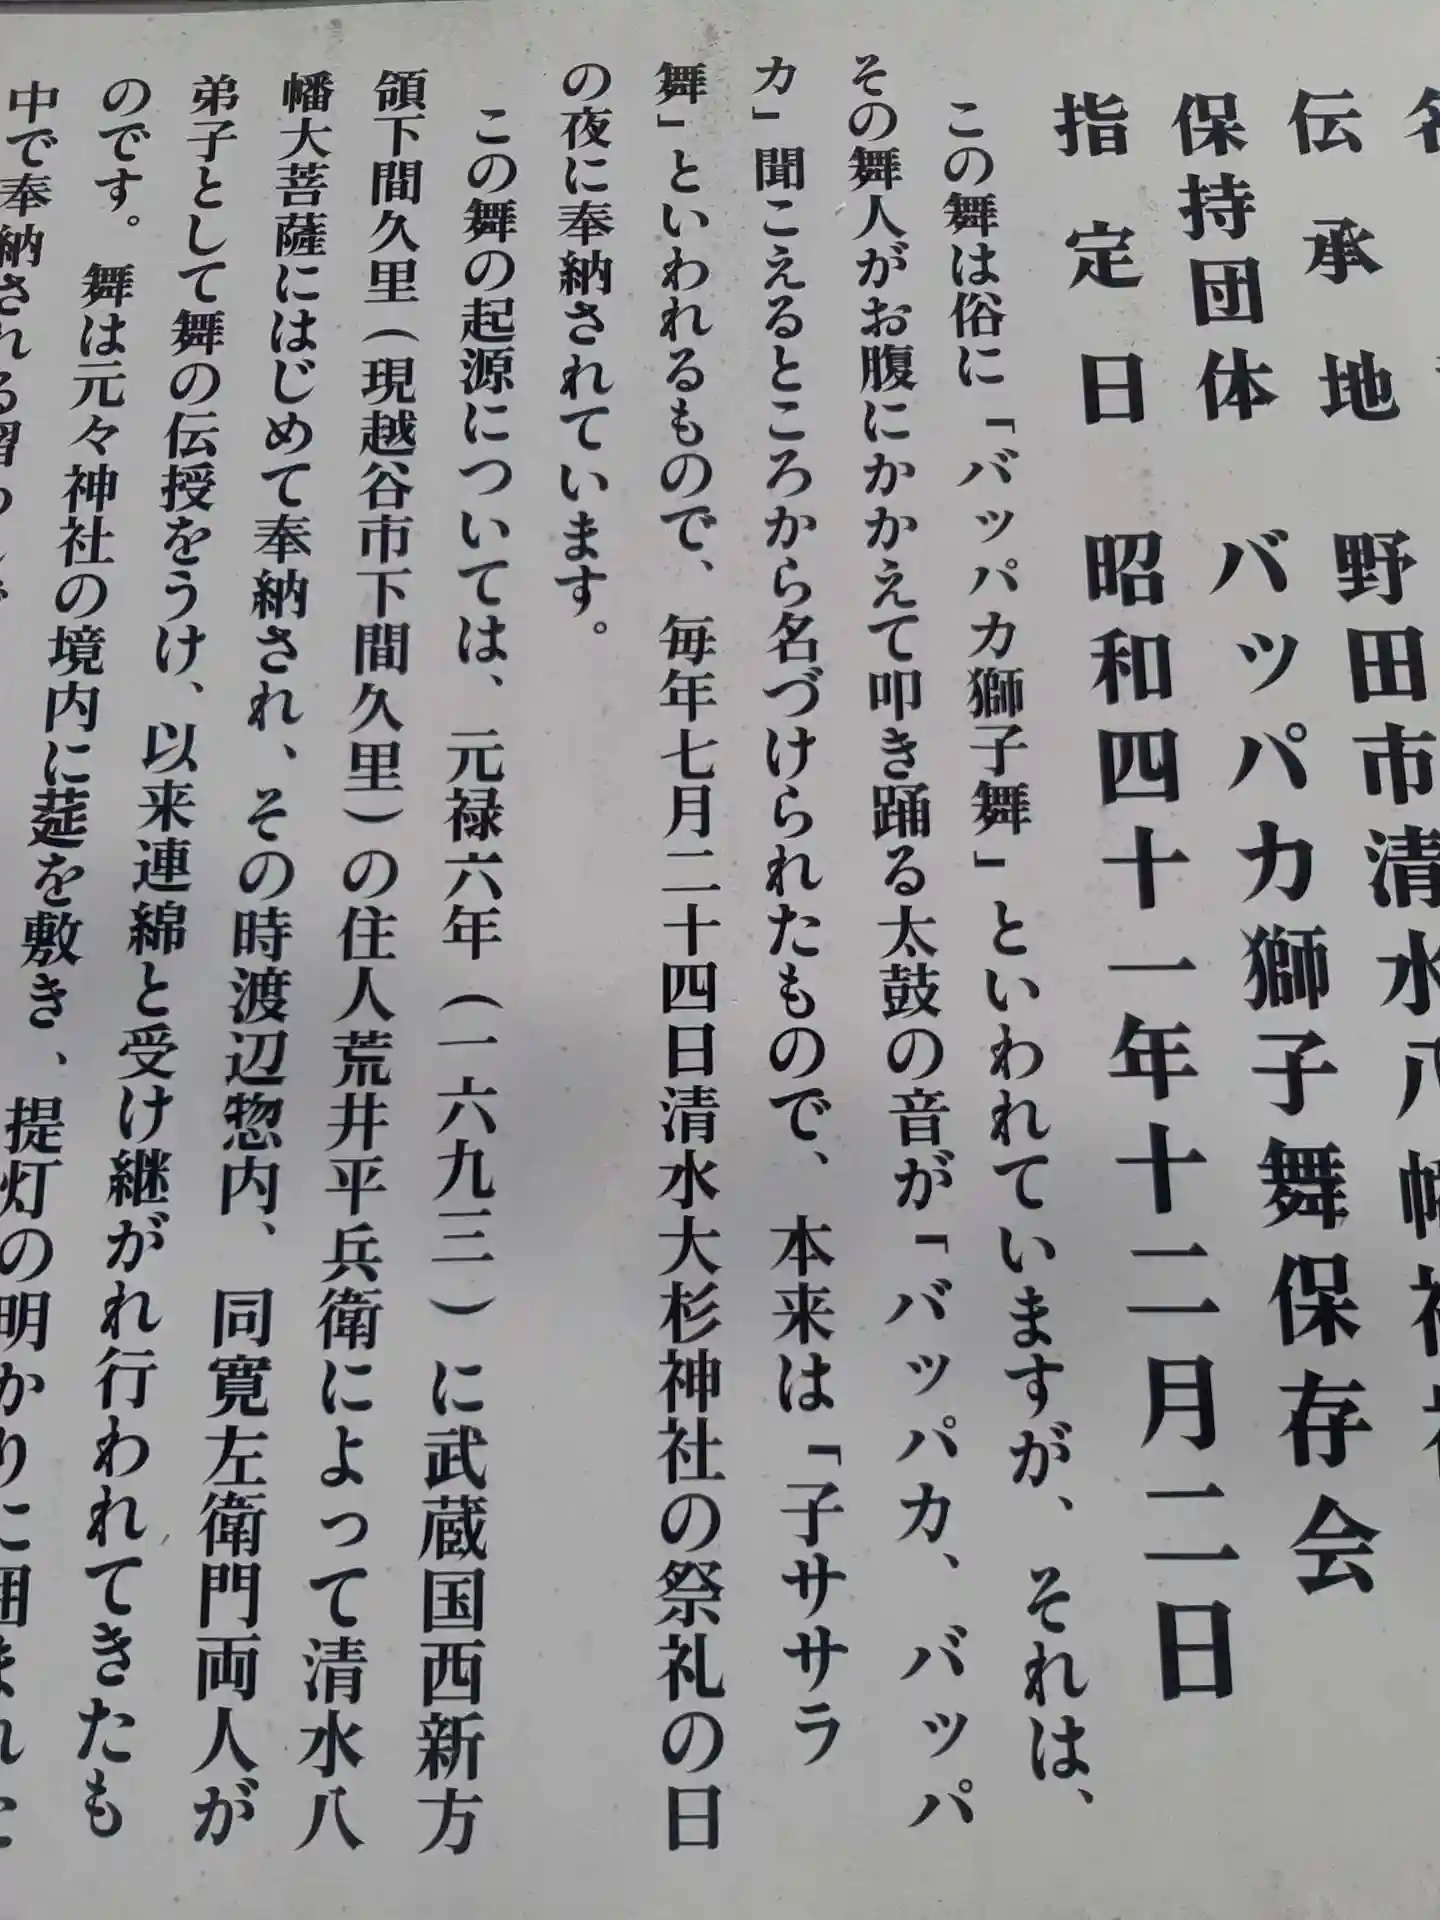 伝承地 野田市清水八幡神社
保持団体 バッパカ獅子舞保存会
指定日 昭和四十一年十二月二日
この舞は俗に「バッパカ獅子舞」といわれていますが、それは、
その舞人がお腹にかかえて叩き踊る太鼓の音が「バッパカ、バッパ
カ」聞こえるところから名づけられたもので、本来は「子ササラ
舞」といわれるもので、毎年七月二十四日清水大杉神社の祭礼の日
の夜に奉納されています。
この舞の起源については、元禄六年(一六九三)に武蔵国西新方
領下間久里(現越谷市下間久里)の住人荒井平兵衛によって清水八
幡大菩薩にはじめて奉納され、その時渡辺惣内、同寛左衛門両人が
弟子として舞の伝授をうけ、以来連綿と受け継がれ行われてきたも
のです。舞は元々神社の境内に莚を敷き、提灯の明かりに囲まれた
中で奉納される習わしで